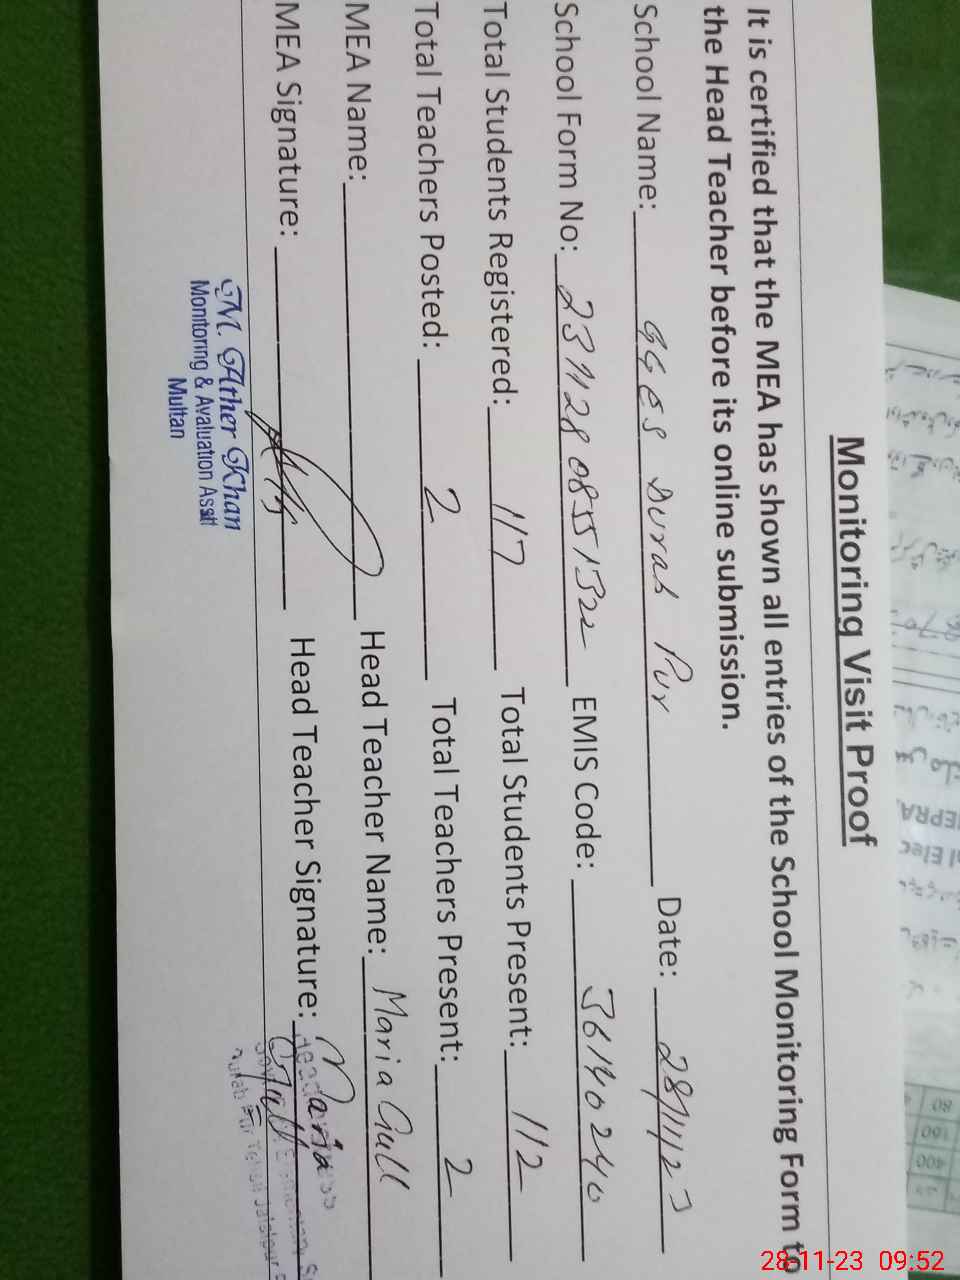 Monitoring Visit Proof
It is certified that the MEA has shown all entries of the School Monitoring Form to
the Head Teacher before its online submission.
School Name: GGES Durab Pur Date: 28/11/23
School Form No: 231128 08551322 EMIS Code: 36140240
Total Students Registered: 117 Total Students Present: 112
Total Teachers Posted: 2 Total Teachers Present: 2
MEA Name: Head Teacher Name: Maria Gull
MEA Signature: Head Teacher Signature: Maria Gull
M. Ather Khan
Monitoring & Avaluation Asstt
Multan
NEPRA
Elec
80
160
400
28-11-23 09:52